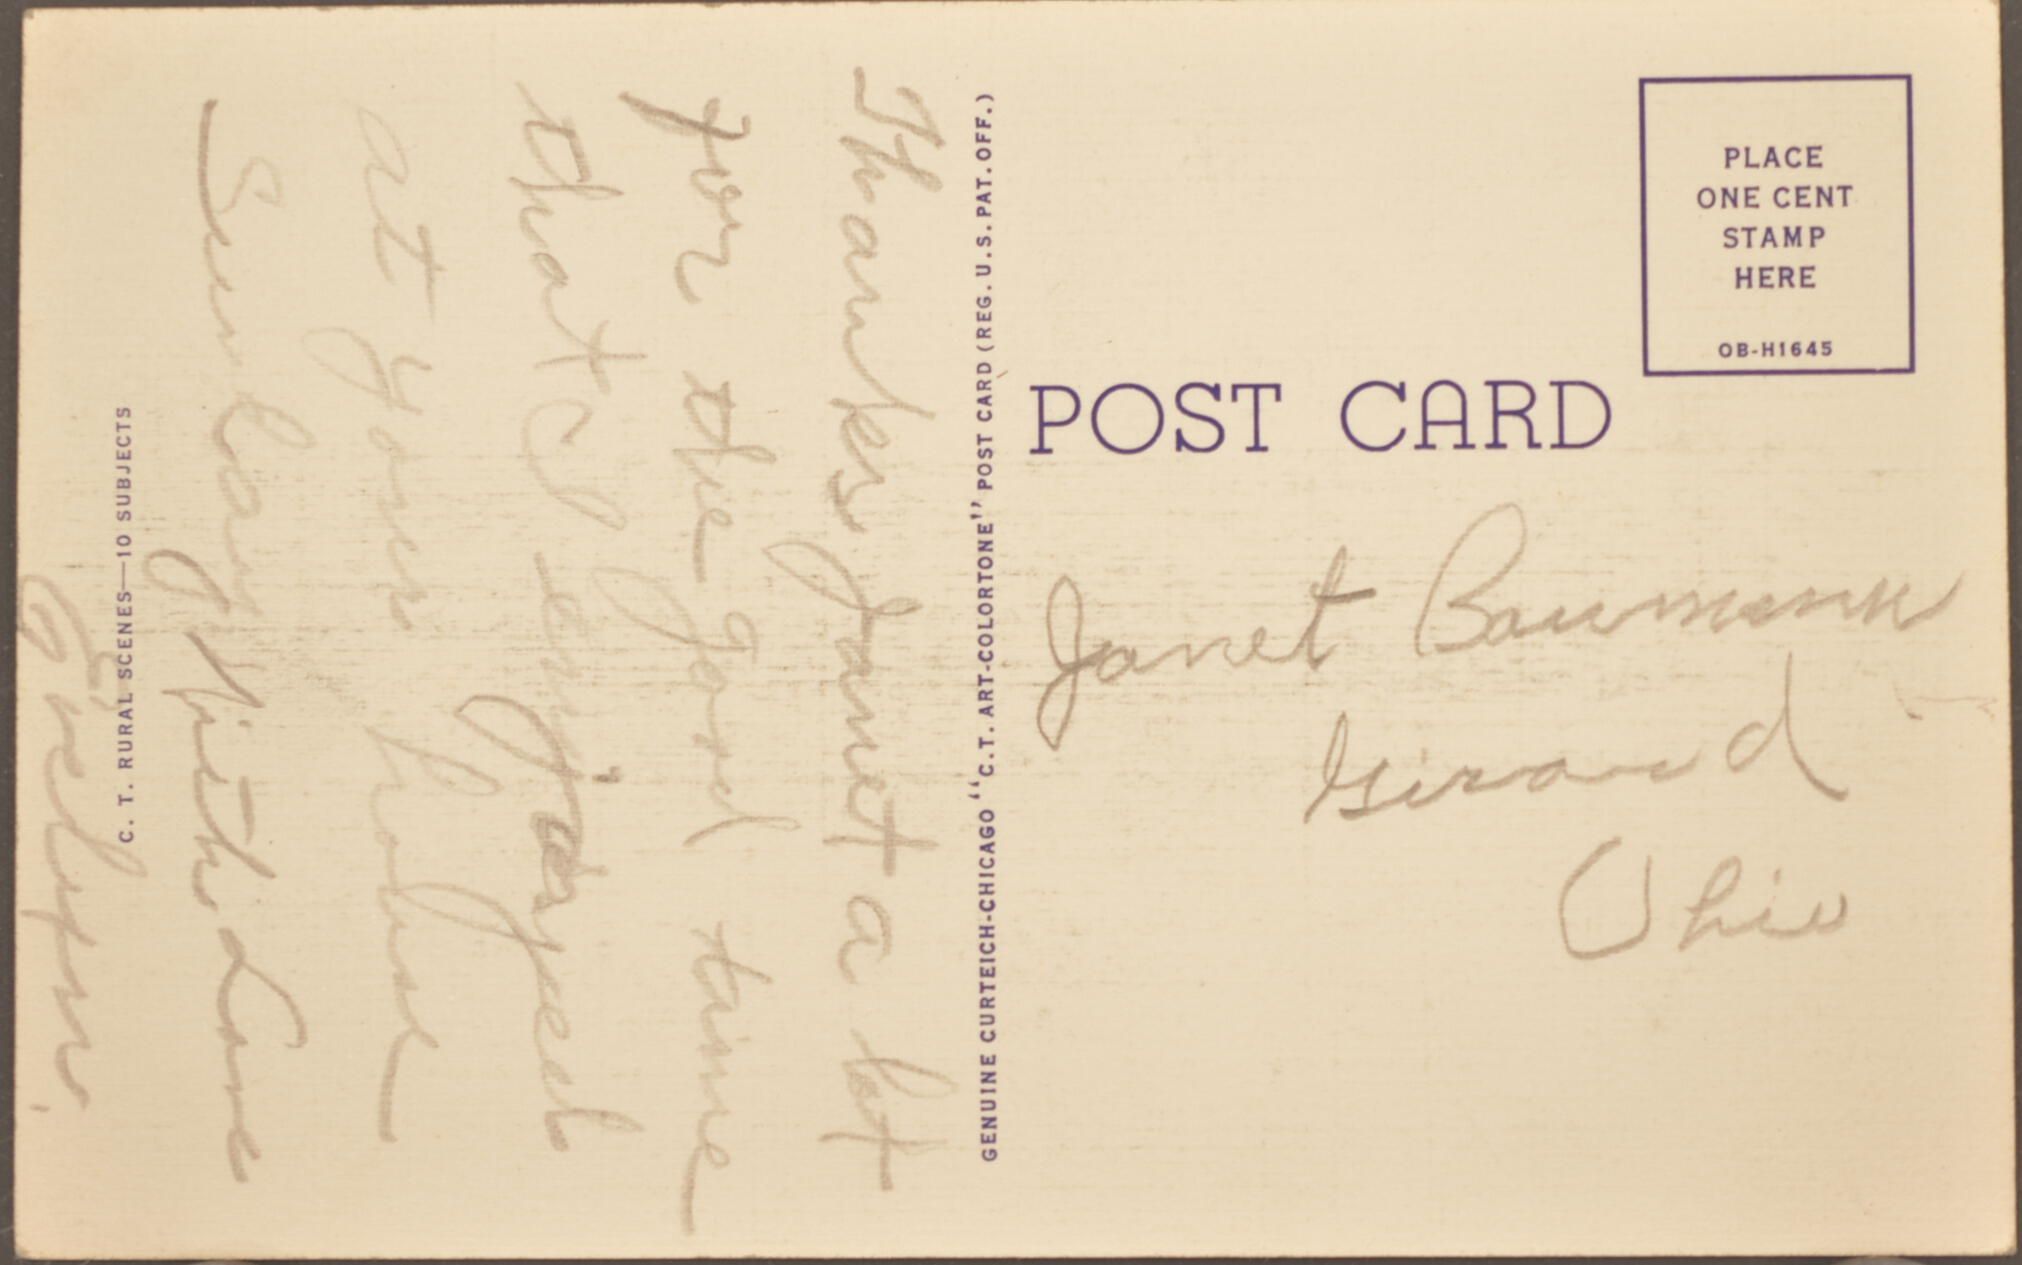 Thanks Janet a lot
for the good time
that I enjoyed
at your house
Sunday With Love
Evelyn.
C. T. RURAL SCENES—10 SUBJECTS
GENUINE CURTEICH-CHICAGO "C.T. ART-COLORTONE" POST CARD (REG. U.S. PAT. OFF.)
PLACE
ONE CENT
STAMP
HERE
OB-H1645
POST CARD
Janet Baumann
Girard
Ohio